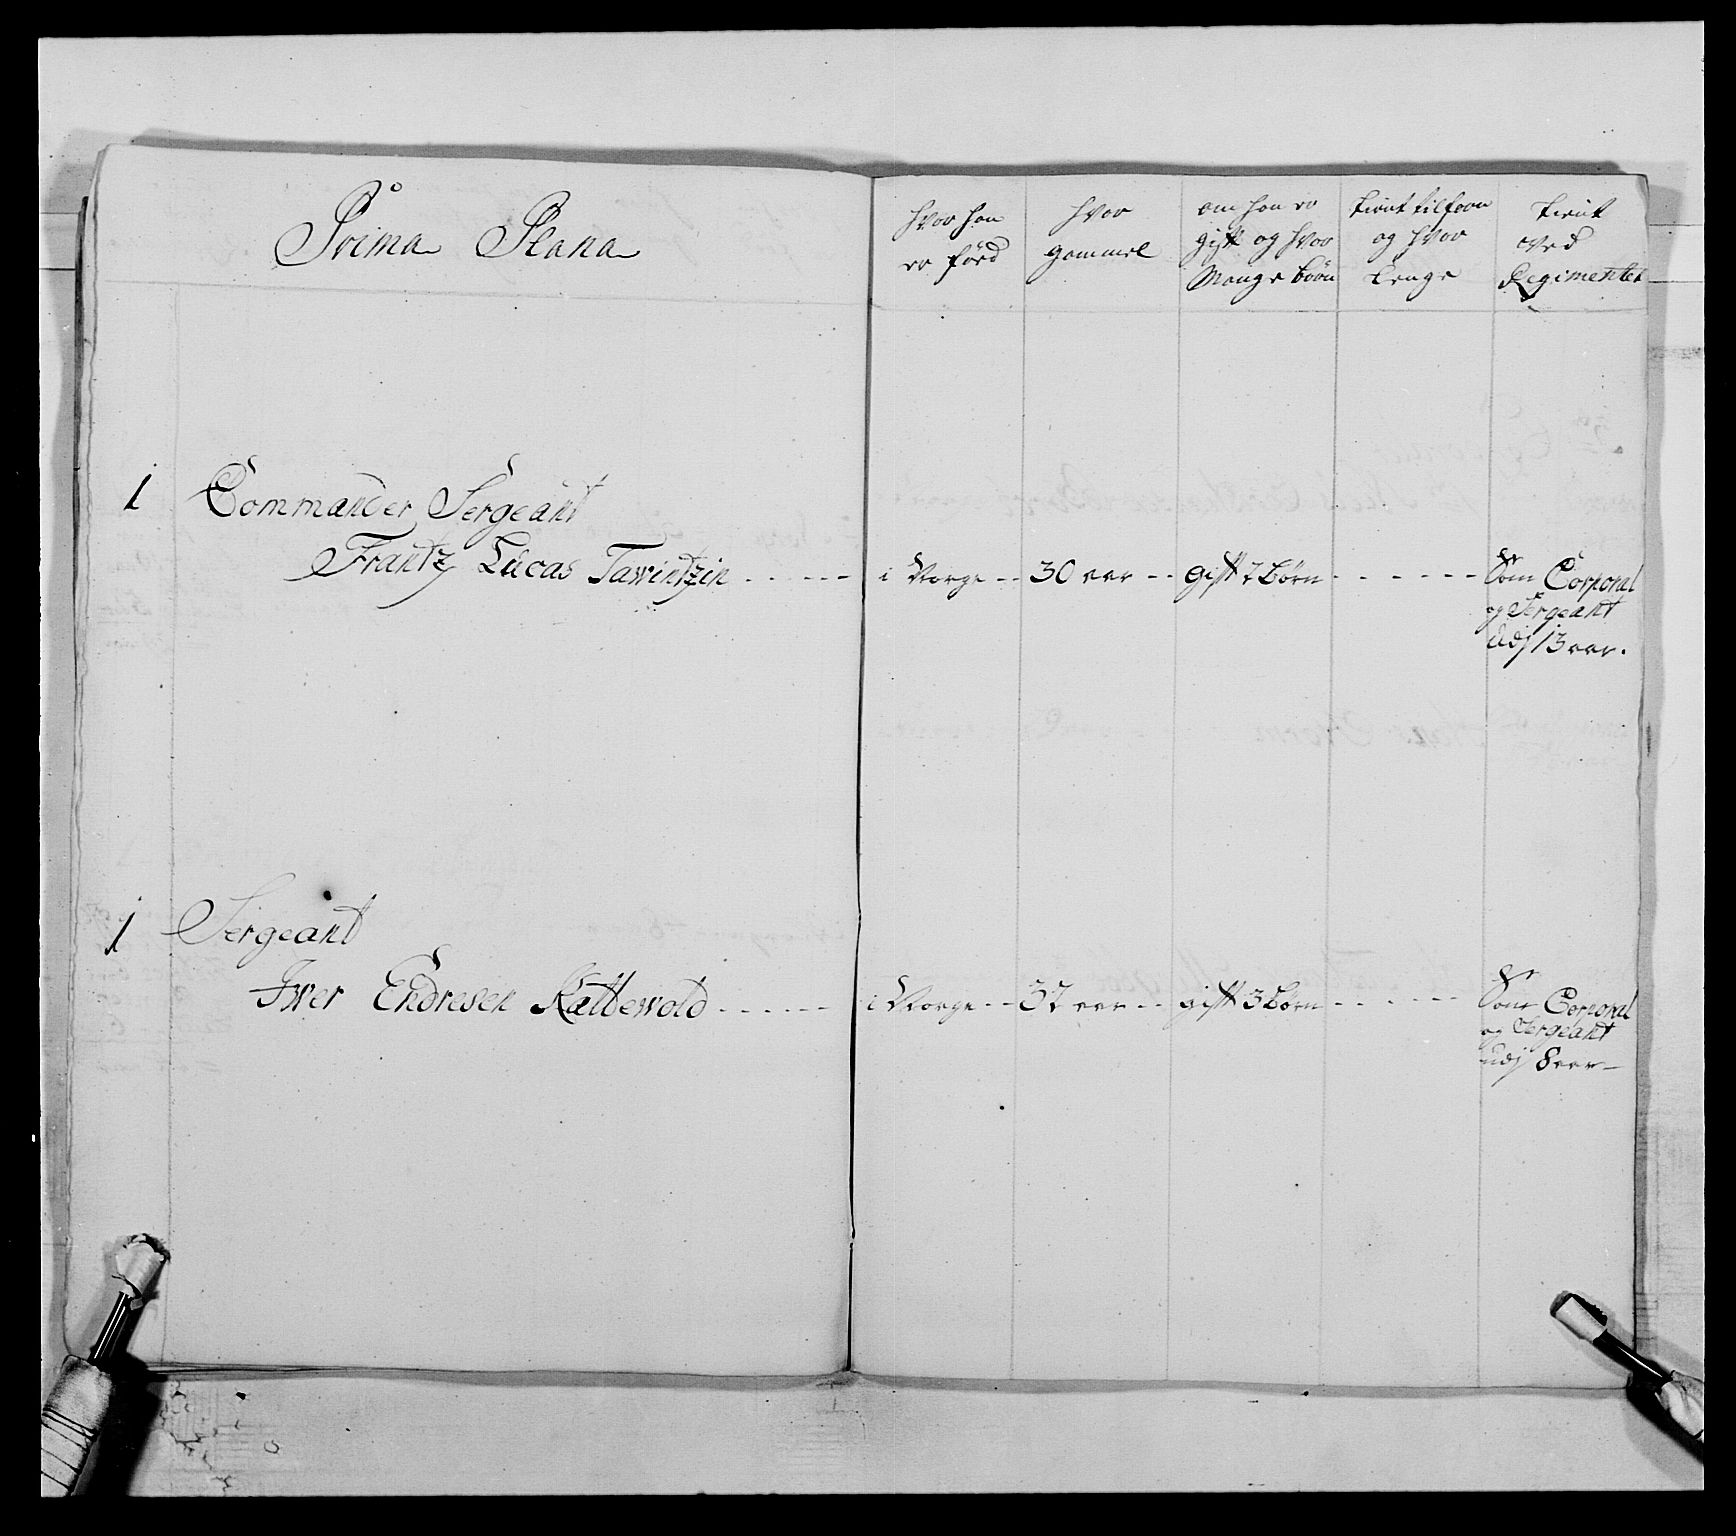 Prima Plana
hvor han
er føed
hvor
gammel
om han er
gift og hvor
Mange børn
tient tilforn
og hvor
Lenge
tient
ved
Regimentet
1 Commander Sergeant
Frantz Lucas Tawintzin - - - - - - i Norge - - 30 aar - - gift 2 børn - - - - - - Som Corporal
og Sergeant
udj 13 aar.
1 Sergeant
Iwer Endresen Kattewold - - - - - - i Norge - - 37 aar - - gift 3 børn - - - - - - Som Corporal
og Sergeant
udj 8 aar